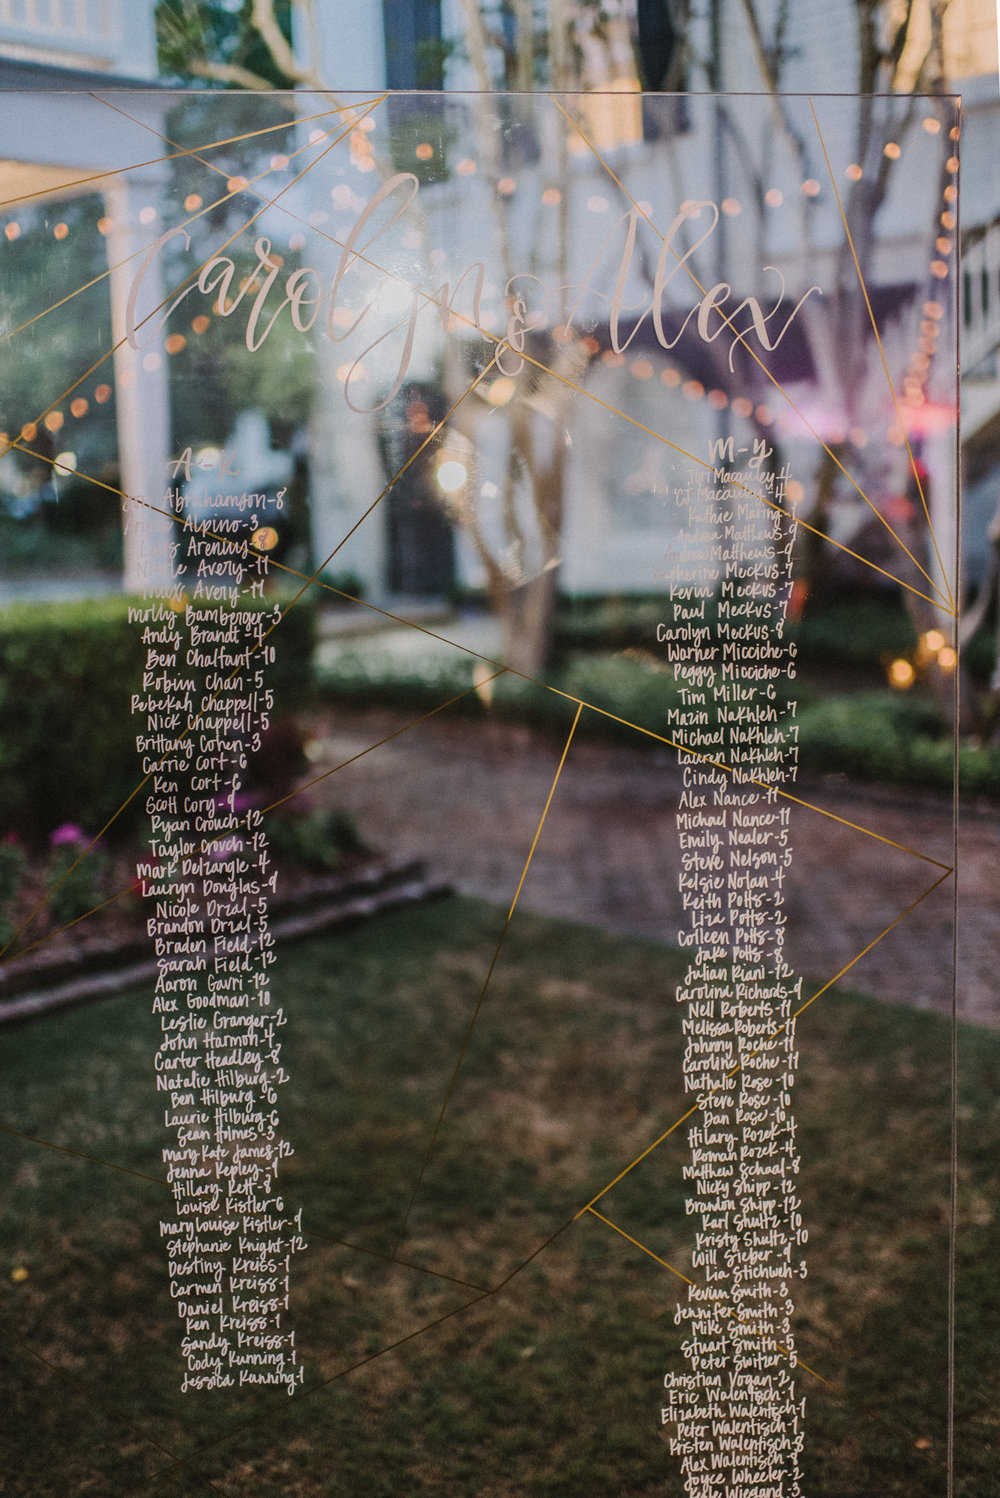 Carolyn & Alex
A-K
Abrahamson-8
Alpino-3
Arenius-8
Nicole Avery-11
Max Avery-11
Molly Bamberger-3
Andy Brandt-4
Ben Chalfant-10
Robiin Chan-5
Rebekah Chappell-5
Nick Chappell-5
Brittany Cohen-3
Carrie Cort-6
Ken Cort-6
Scott Cory-9
Ryan Crouch-12
Taylor Crouch-12
Mark Delzangle-4
Lauryn Douglas-9
Nicole Drzal-5
Brandon Drzal-5
Braden Field-12
Sarah Field-12
Aaron Gavri-12
Alex Goodman-10
Leslie Granger-2
John Harmon-4
Carter Headley-8
Natalie Hilburg-2
Ben Hilburg-6
Laurie Hilburg-6
Sean Holmes-3
Mary Kate James-12
Jenna Kepley-9
Hillary Kett-3
Louise Kistler-6
Mary Louise Kistler-9
Stephanie Knight-12
Destiny Kreiss-1
Carmen Kreiss-1
Daniel Kreiss-1
Ken Kreiss-1
Sandy Kreiss-1
Cody Kunning-1
Jessica Kunning-1
M-Y
Tori Macauley-4
CJ Macauley-4
Kathie Maring-1
Andrew Matthews-9
Matthews-9
Katherine Meckus-7
Kevin Meckus-7
Paul Meckus-7
Carolyn Meckus-8
Warner Micciche-6
Peggy Micciche-6
Tim Miller-6
Mazin Nakhleh-7
Michael Nakhleh-7
Lauren Nakhleh-7
Cindy Nakhleh-7
Alex Nance-11
Michael Nance-11
Emily Nealer-5
Steve Nelson-5
Kelsie Nolan-4
Keith Potts-2
Liza Potts-2
Colleen Potts-8
Jake Potts-8
Julian Riani-12
Carolina Richards-9
Nell Roberts-11
Melissa Roberts-11
Johnny Roche-11
Caroline Roche-11
Nathalie Rose-10
Steve Rose-10
Dan Rose-10
Hilary Rozek-4
Roman Rozek-4
Matthew Schaal-8
Nicky Shipp-12
Brandon Shipp-12
Karl Shultz-10
Kristy Shultz-10
Will Sieber-9
Lia Stichweh-3
Kevin Smith-3
Jennifer Smith-3
Mike Smith-3
Stuart Smith-5
Peter Switzer-5
Christian Vogan-2
Eric Walentisch-1
Elizabeth Walentisch-1
Peter Walentisch-1
Kristen Walentisch-8
Alex Walentisch-8
Joyce Wheeler-2
Kyle Wiegand-3